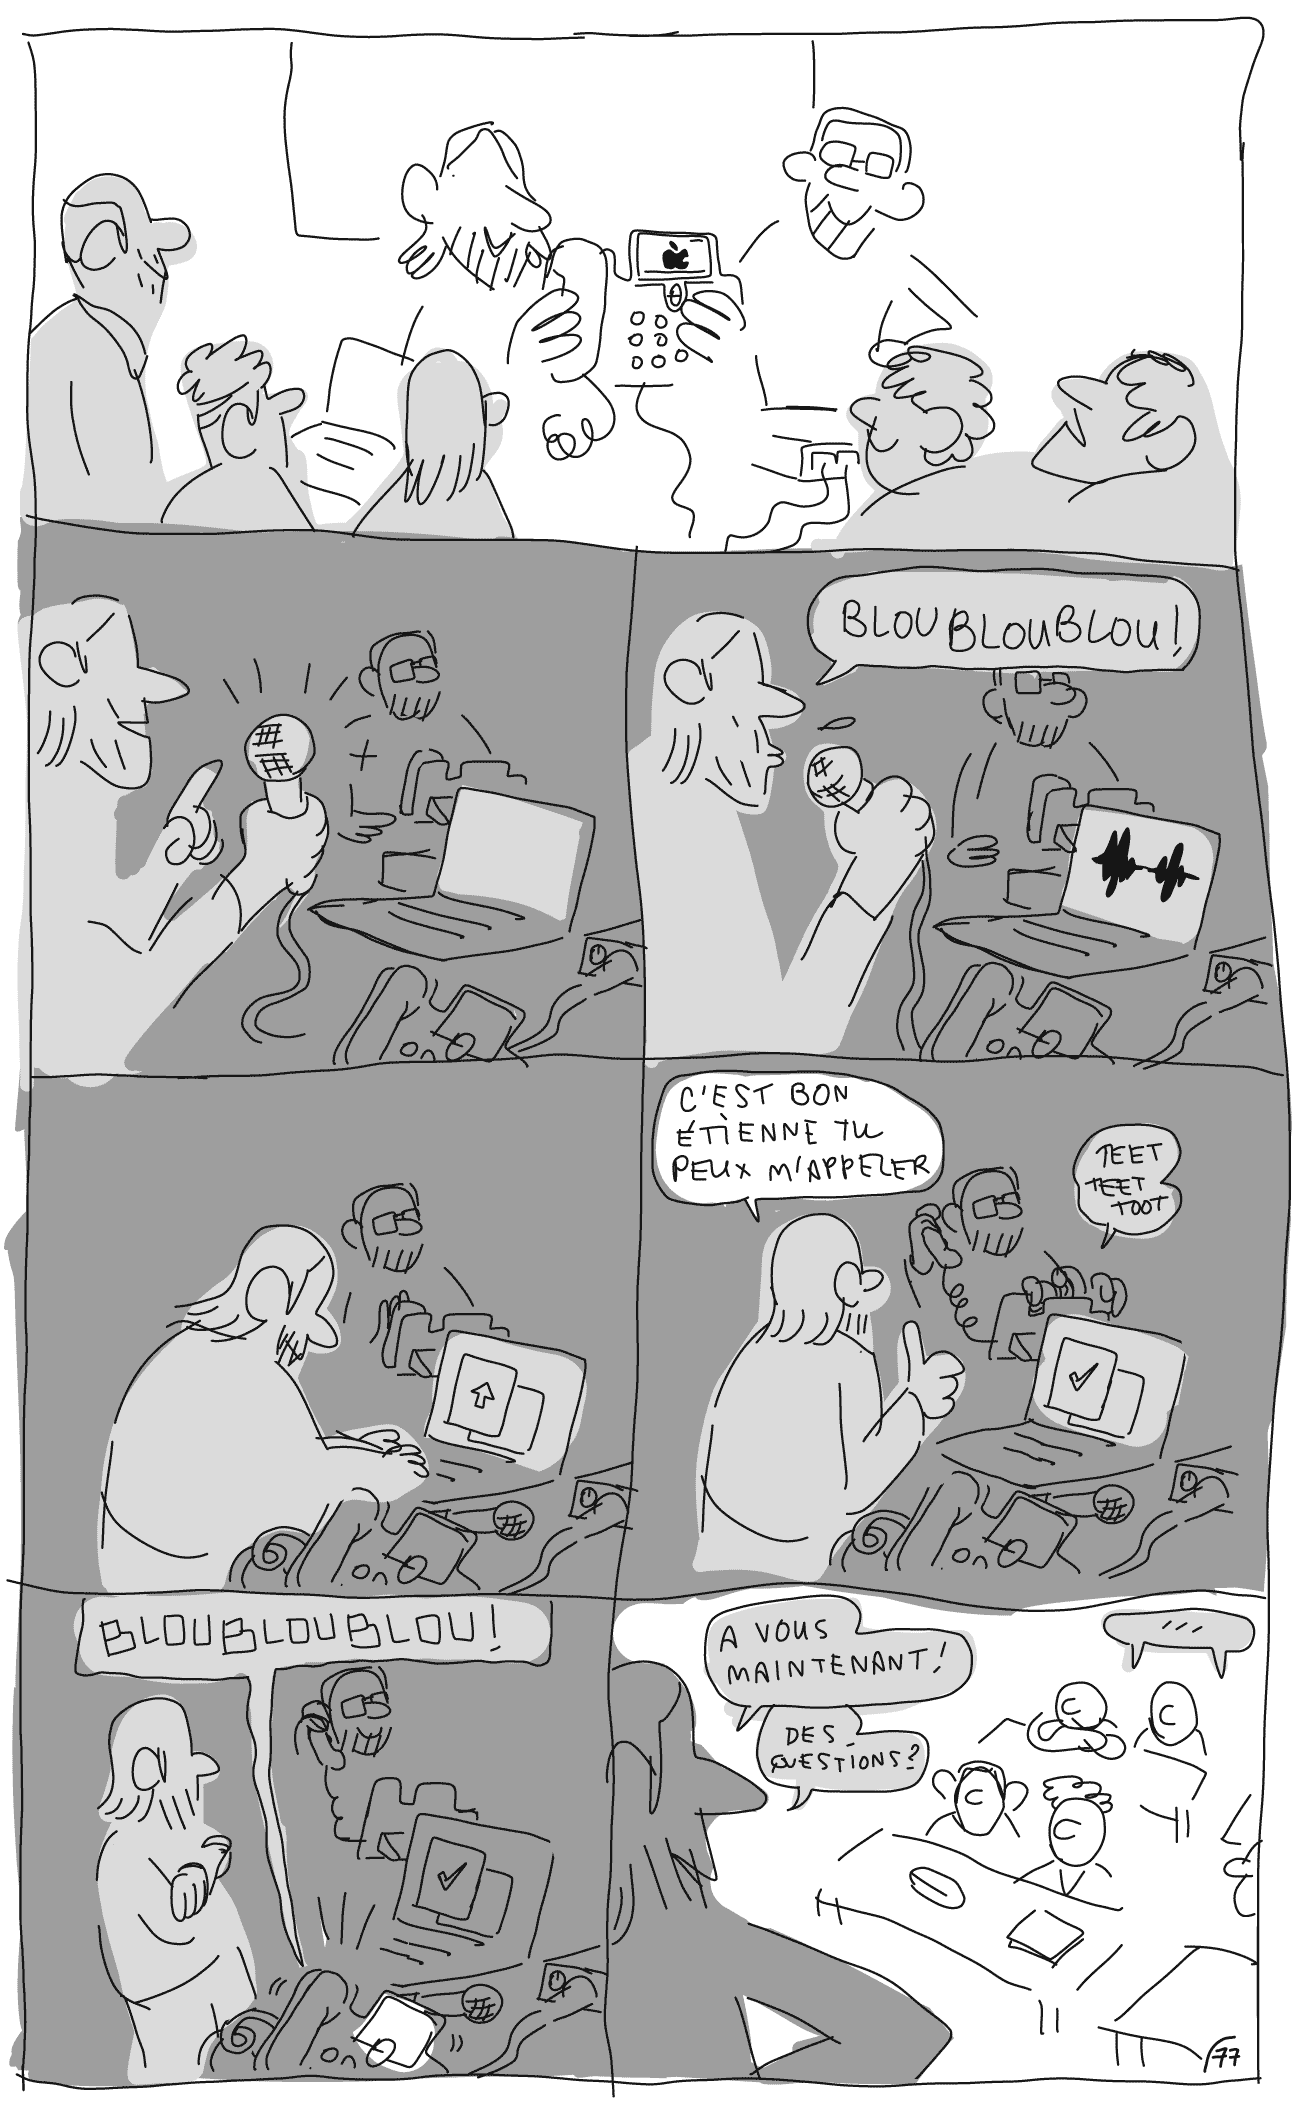 BLOUBLOUBLOU!
C'EST BON
ÉTIENNE TU
PEUX M'APPELER
TEET
TEET
TOOT
BLOUBLOUBLOU!
A VOUS
MAINTENANT!
DES
QUESTIONS?
...
77